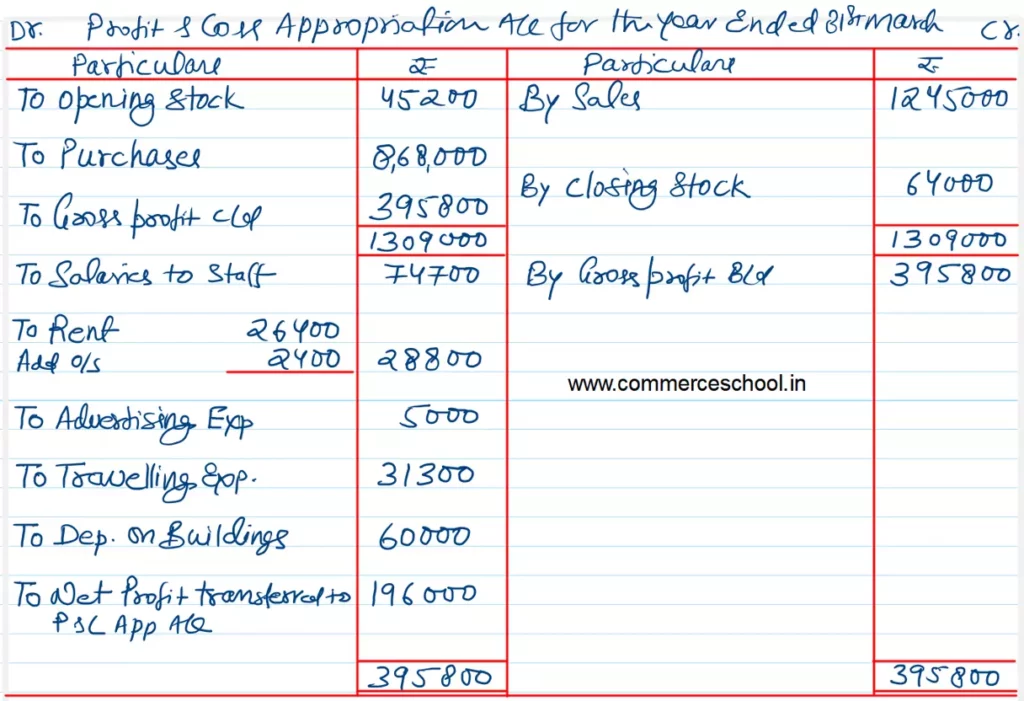 Dr. Profit & Loss Appropriation A/c for the year Ended 31st March Cr.
Particulars ₹ Particulars ₹
To Opening Stock 45200 By Sales 1245000
To Purchases 8,68,000
By Closing Stock 64000
To Gross profit c/d 395800
1309000 1309000
To Salaries to Staff 74700 By Gross profit B/d 395800
To Rent 26400
Add O/s 2400 28800
www.commerceschool.in
To Advertising Exp 5000
To Travelling Exp. 31300
To Dep. on Buildings 60000
To Net Profit transferred to 196000
P&L App A/c
395800 395800